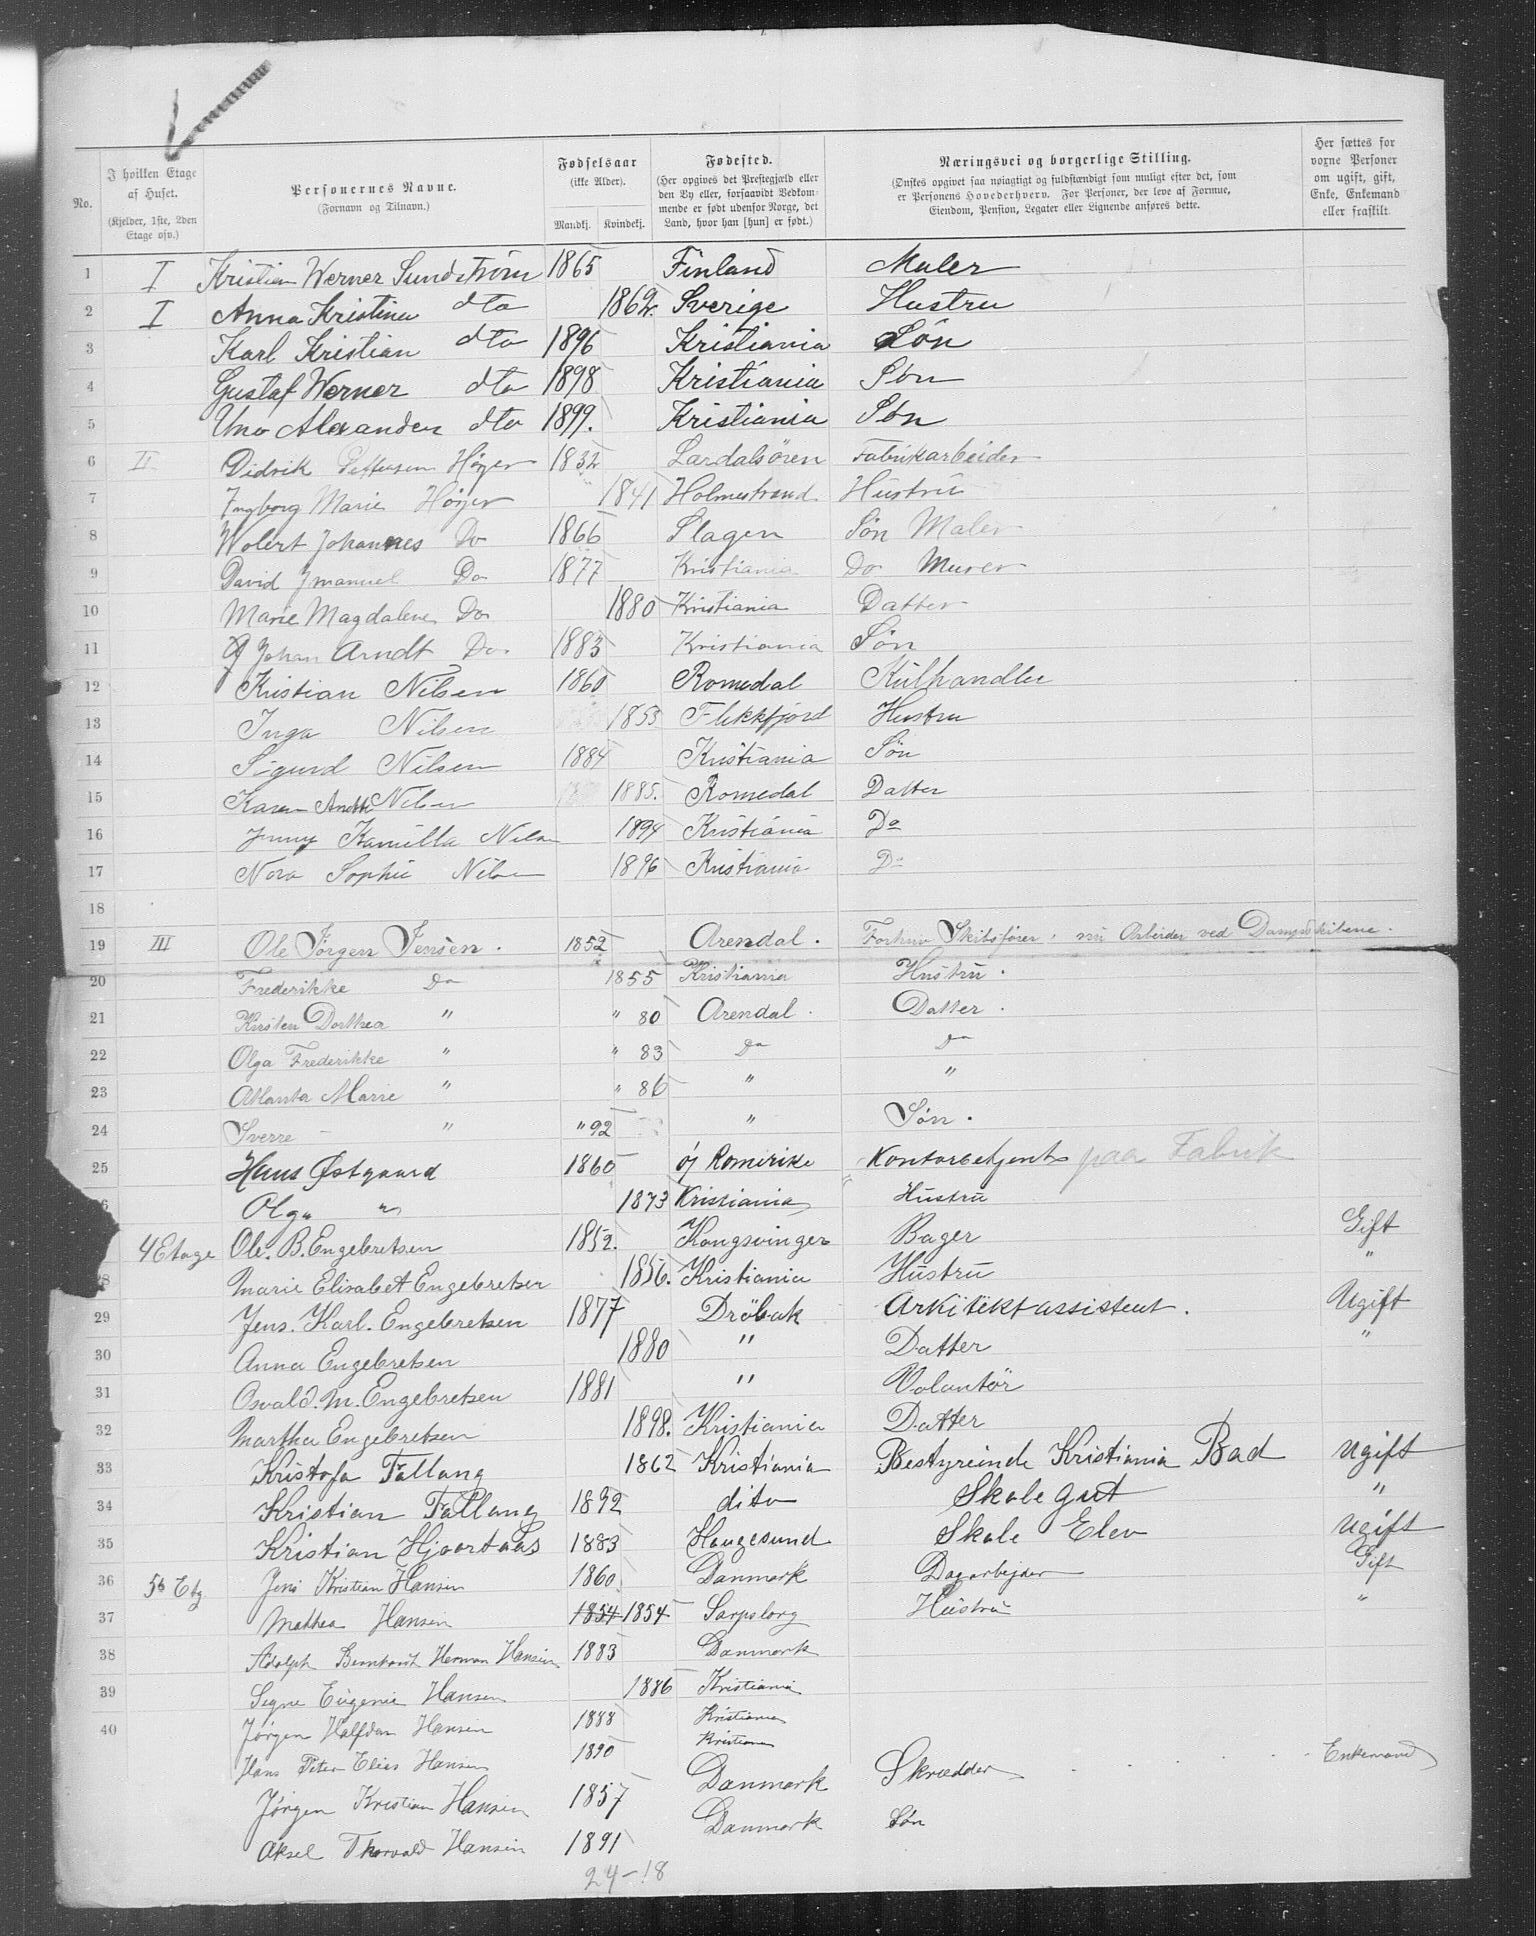 No. I hvilken Etage af Huset. (Kjelder, 1ste, 2den Etage osv.) Personernes Navne. (Fornavn og Tilnavn.) Fødselsaar (ikke Alder). Mandkj. Kvindekj. Fødested. (Her opgives det Prestegjæld eller den By eller, forsaavidt Vedkommende er født udenfor Norge, det Land, hvor han [hun] er født.) Næringsvei og borgerlige Stilling. (Ønskes opgivet saa nøiagtigt og fuldstændigt som muligt efter det, som er Personens Hovederhverv. For Personer, der leve af Formue, Eiendom, Pension, Legater eller Lignende anføres dette. Her sættes for voxne Personer om ugift, gift, Enke, Enkemand eller fraskilt.
1 I Kristian Werner Sundström 1865 Finland Maler
2 I Anna Kristina dto 1862. Sverige Hustru
3 Karl Kristian dto 1896 Kristiania Søn
4 Gustaf Werner dto 1898 Kristiania Søn
5 Uno Alexander dto 1899. Kristiania Søn
6 II Didrik Pettersen Höyer 1832 Lardalsören Fabrikarbeider
7 Ingborg Marie Höyer 1841 Holmestrand Hustru
8 Wolert Johannes Do 1866 Slagen Søn Maler
9 David Imanuel Do 1877 Kristiania Do Murer
10 Marie Magdalene Do 1880 Kristiania Datter
11 Johan Arndt Do 1883 Kristiania Søn
12 Kristian Nilsen 1860 Romedal Kulhandler
13 Inga Nilsen 1853 Flekkfjord Hustru
14 Sigurd Nilsen 1884 Kristiania Søn
15 Karen Anette Nilsen 1885. Romedal Datter
16 Jenny Kamilla Nilsen 1894 Kristiania Do
17 Nora Sophie Nilsen 1896 Kristiania Do
18
19 III Ole Jørgen Jensen. 1852 Arendal. Forhuv Skibsfører. nu Arbeider ved Dampskibene.
20 Frederikke Do 1855 Kristiania Hustru.
21 Kirsten Dorthea " " 80 Arendal. Datter.
22 Olga Frederikke " " 83 Do Do
23 Atlanta Marie " " 86 " "
24 Sverre - " " 92 " Søn.
25 Hans Østgaard 1860 Ø Romerike Kontorbetjent paa Fabrik
Olga " 1873 Kristiania Hustru
4 Etage Ole. B. Engebretsen 1852. Kongsvinger Bager Gift
28 Marie Elisabet Engebretsen 1856. Kristiania Hustru "
29 Jens. Karl. Engebretsen 1877 Dröbak Arkitektassistent. Ugift
30 Anna Engebretsen 1880 " Datter "
31 Osvald. M. Engebretsen 1881 " Volontör
32 Martha Engebretsen 1898. Kristiania Datter
33 Kristofa Tallang 1862 Kristiania Bestyreinde Kristiania Bad Ugift
34 Kristian Tallang 1892 dito Skole gut "
35 Kristian Hjaartaas 1883 Haugesund Skole Elev Ugift
36 5te Etg Jens Kristian Hansen 1860. Danmark Dagarbejder Gift
37 Mathea Hansen 1854 1854 Sarpsborg Hustru "
38 Adolph Bernhardt Herman Hansen 1883 Danmark
39 Signe Eugenie Hansen 1886 Kristiania
40 Jørgen Halfdan Hansen 1888 Kristiania
Hans Peter Elias Hansen 1890 Kristiania
Jørgen Kristian Hansen 1857 Danmark Skrædder Enkemand
Aksel Thorvald Hansen 1891 Danmark Søn
24-18